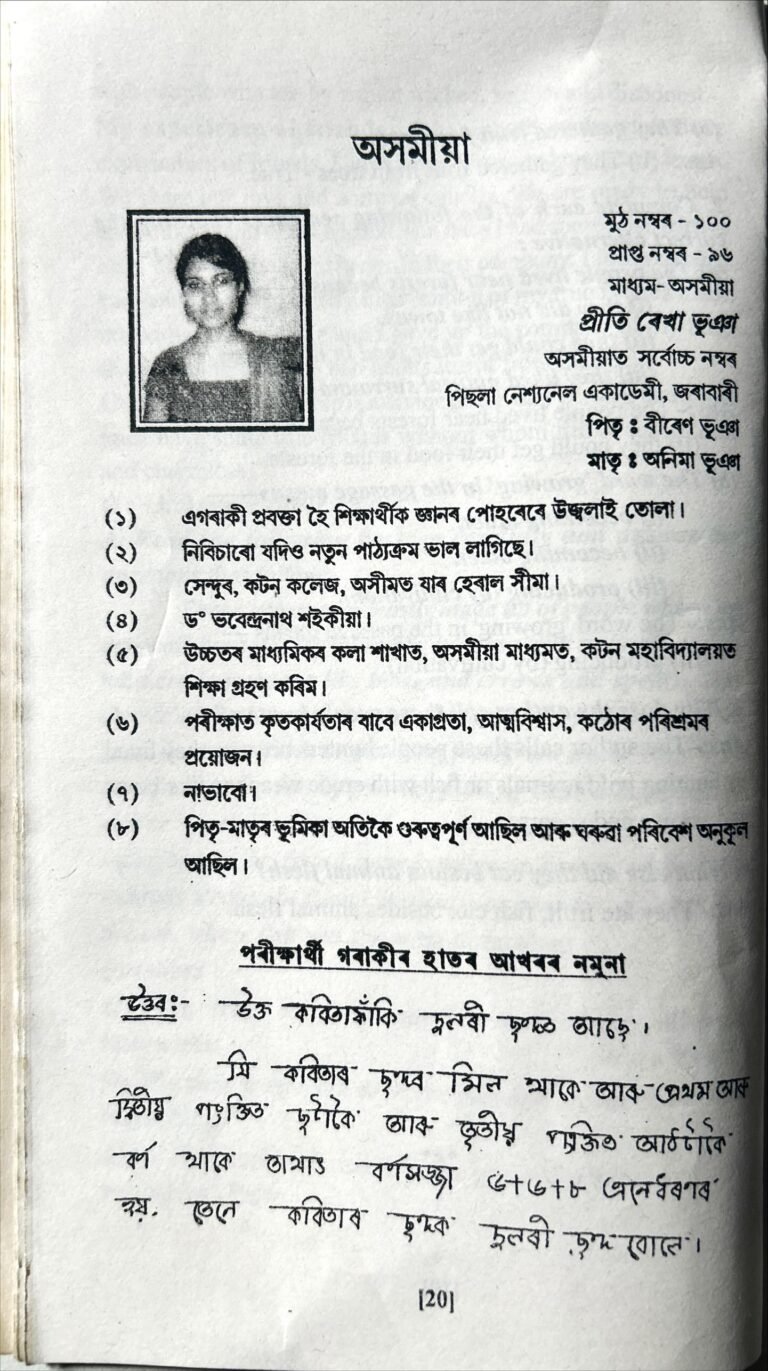 অসমীয়া
মুঠ নম্বৰ - ১০০
প্ৰাপ্ত নম্বৰ - ৯৬
মাধ্যম- অসমীয়া
প্ৰীতি ৰেখা ভূঞা
অসমীয়াত সৰ্বোচ্চ নম্বৰ
পিছলা নেশ্যনেল একাডেমী, জৰাবাৰী
পিতৃ : বীৰেণ ভূঞা
মাতৃ : অনিমা ভূঞা
(১) এগৰাকী প্ৰবক্তা হৈ শিক্ষাৰ্থীক জ্ঞানৰ পোহৰেৰে উজ্বলাই তোলা।
(২) নিবিচাৰো যদিও নতুন পাঠ্যক্ৰম ভাল লাগিছে।
(৩) সেন্দুৰ, কটন কলেজ, অসীমত যাৰ হেৰাল সীমা।
(৪) ড° ভবেন্দ্ৰনাথ শইকীয়া।
(৫) উচ্চতৰ মাধ্যমিকৰ কলা শাখাত, অসমীয়া মাধ্যমত, কটন মহাবিদ্যালয়ত
শিক্ষা গ্ৰহণ কৰিম।
(৬) পৰীক্ষাত কৃতকাৰ্যতাৰ বাবে একাগ্ৰতা, আত্মবিশ্বাস, কঠোৰ পৰিশ্ৰমৰ
প্ৰয়োজন।
(৭) নাভাবো।
(৮) পিতৃ-মাতৃৰ ভূমিকা অতিকৈ গুৰুত্বপূৰ্ণ আছিল আৰু ঘৰুৱা পৰিবেশ অনুকূল
আছিল।
পৰীক্ষাৰ্থী গৰাকীৰ হাতৰ আখৰৰ নমুনা
উত্তৰ:- উক্ত কবিতাফাঁকি দুলৰী ছন্দত আছে।
যি কবিতাৰ ছন্দৰ মিল থাকে আৰু প্ৰথম আৰু
দ্বিতীয় পংক্তিত ছটাকৈ আৰু তৃতীয় পংক্তিত আঠটাকৈ
বৰ্ণ থাকে অৰ্থাৎ বৰ্ণসজ্জা ৬+৬+৮ এনেধৰণৰ
হয়, তেনে কবিতাৰ ছন্দক দুলৰী ছন্দ বোলে।
[20]